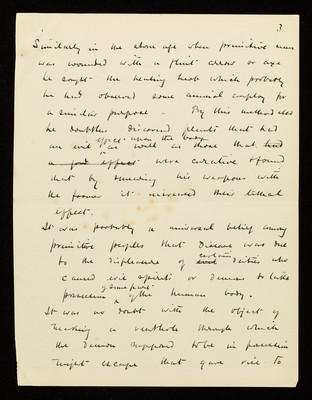 3
Similarly in the stone age when primitive man
was wounded with a flint arrow or axe
he sought the healing herb which probably
he had observed some animal employ for
a similar purpose. By this method also
he doubtless discovered plants that had
an evil effect upon the body as well as those that had
a good effect were curative & found
that by smearing his weapons with
the former it increased their lethal
effect.
It was probably a universal belief among
primitive peoples that Disease was due
to the displeasure of evil certain deities who
caused evil spirits or demons to take
possession of some part of the human body.
It was no doubt with the object of
making a venthole through which
the Demon supposed to be in possession
might escape that gave rise to